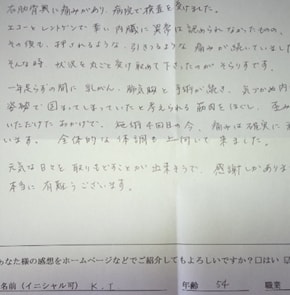 右脇背部に痛みがあり、病院で検査を受けました。
エコーとレントゲンで幸い内臓に異常は認められなかったものの、
その後も、押されるような、引きつるような痛みが続いていました。
そんな時、状況を丸ごと受け取めて下さったのがそらりすです。
一年足らずの間に乳がん、
と手術が続き、気づかぬ内
姿勢で固まってしまっていたと考えられる筋肉をほぐし、歪み
いただけたおかげで、施術4回目の今、痛みは確実に
います。全体的な体調も上向いて来ました。
元気な日々を取りもどすことが出来そうで、感謝しかありま
本当に有難うございます。
あなた様の感想をホームページなどでご紹介してもよろしいですか？□はい
名前（イニシャル可） K.I 年齢 54 職業